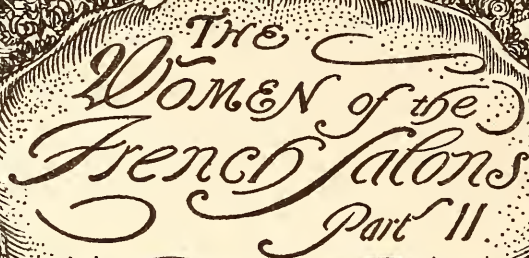 THE
WOMEN of the
French Salons
Part II.